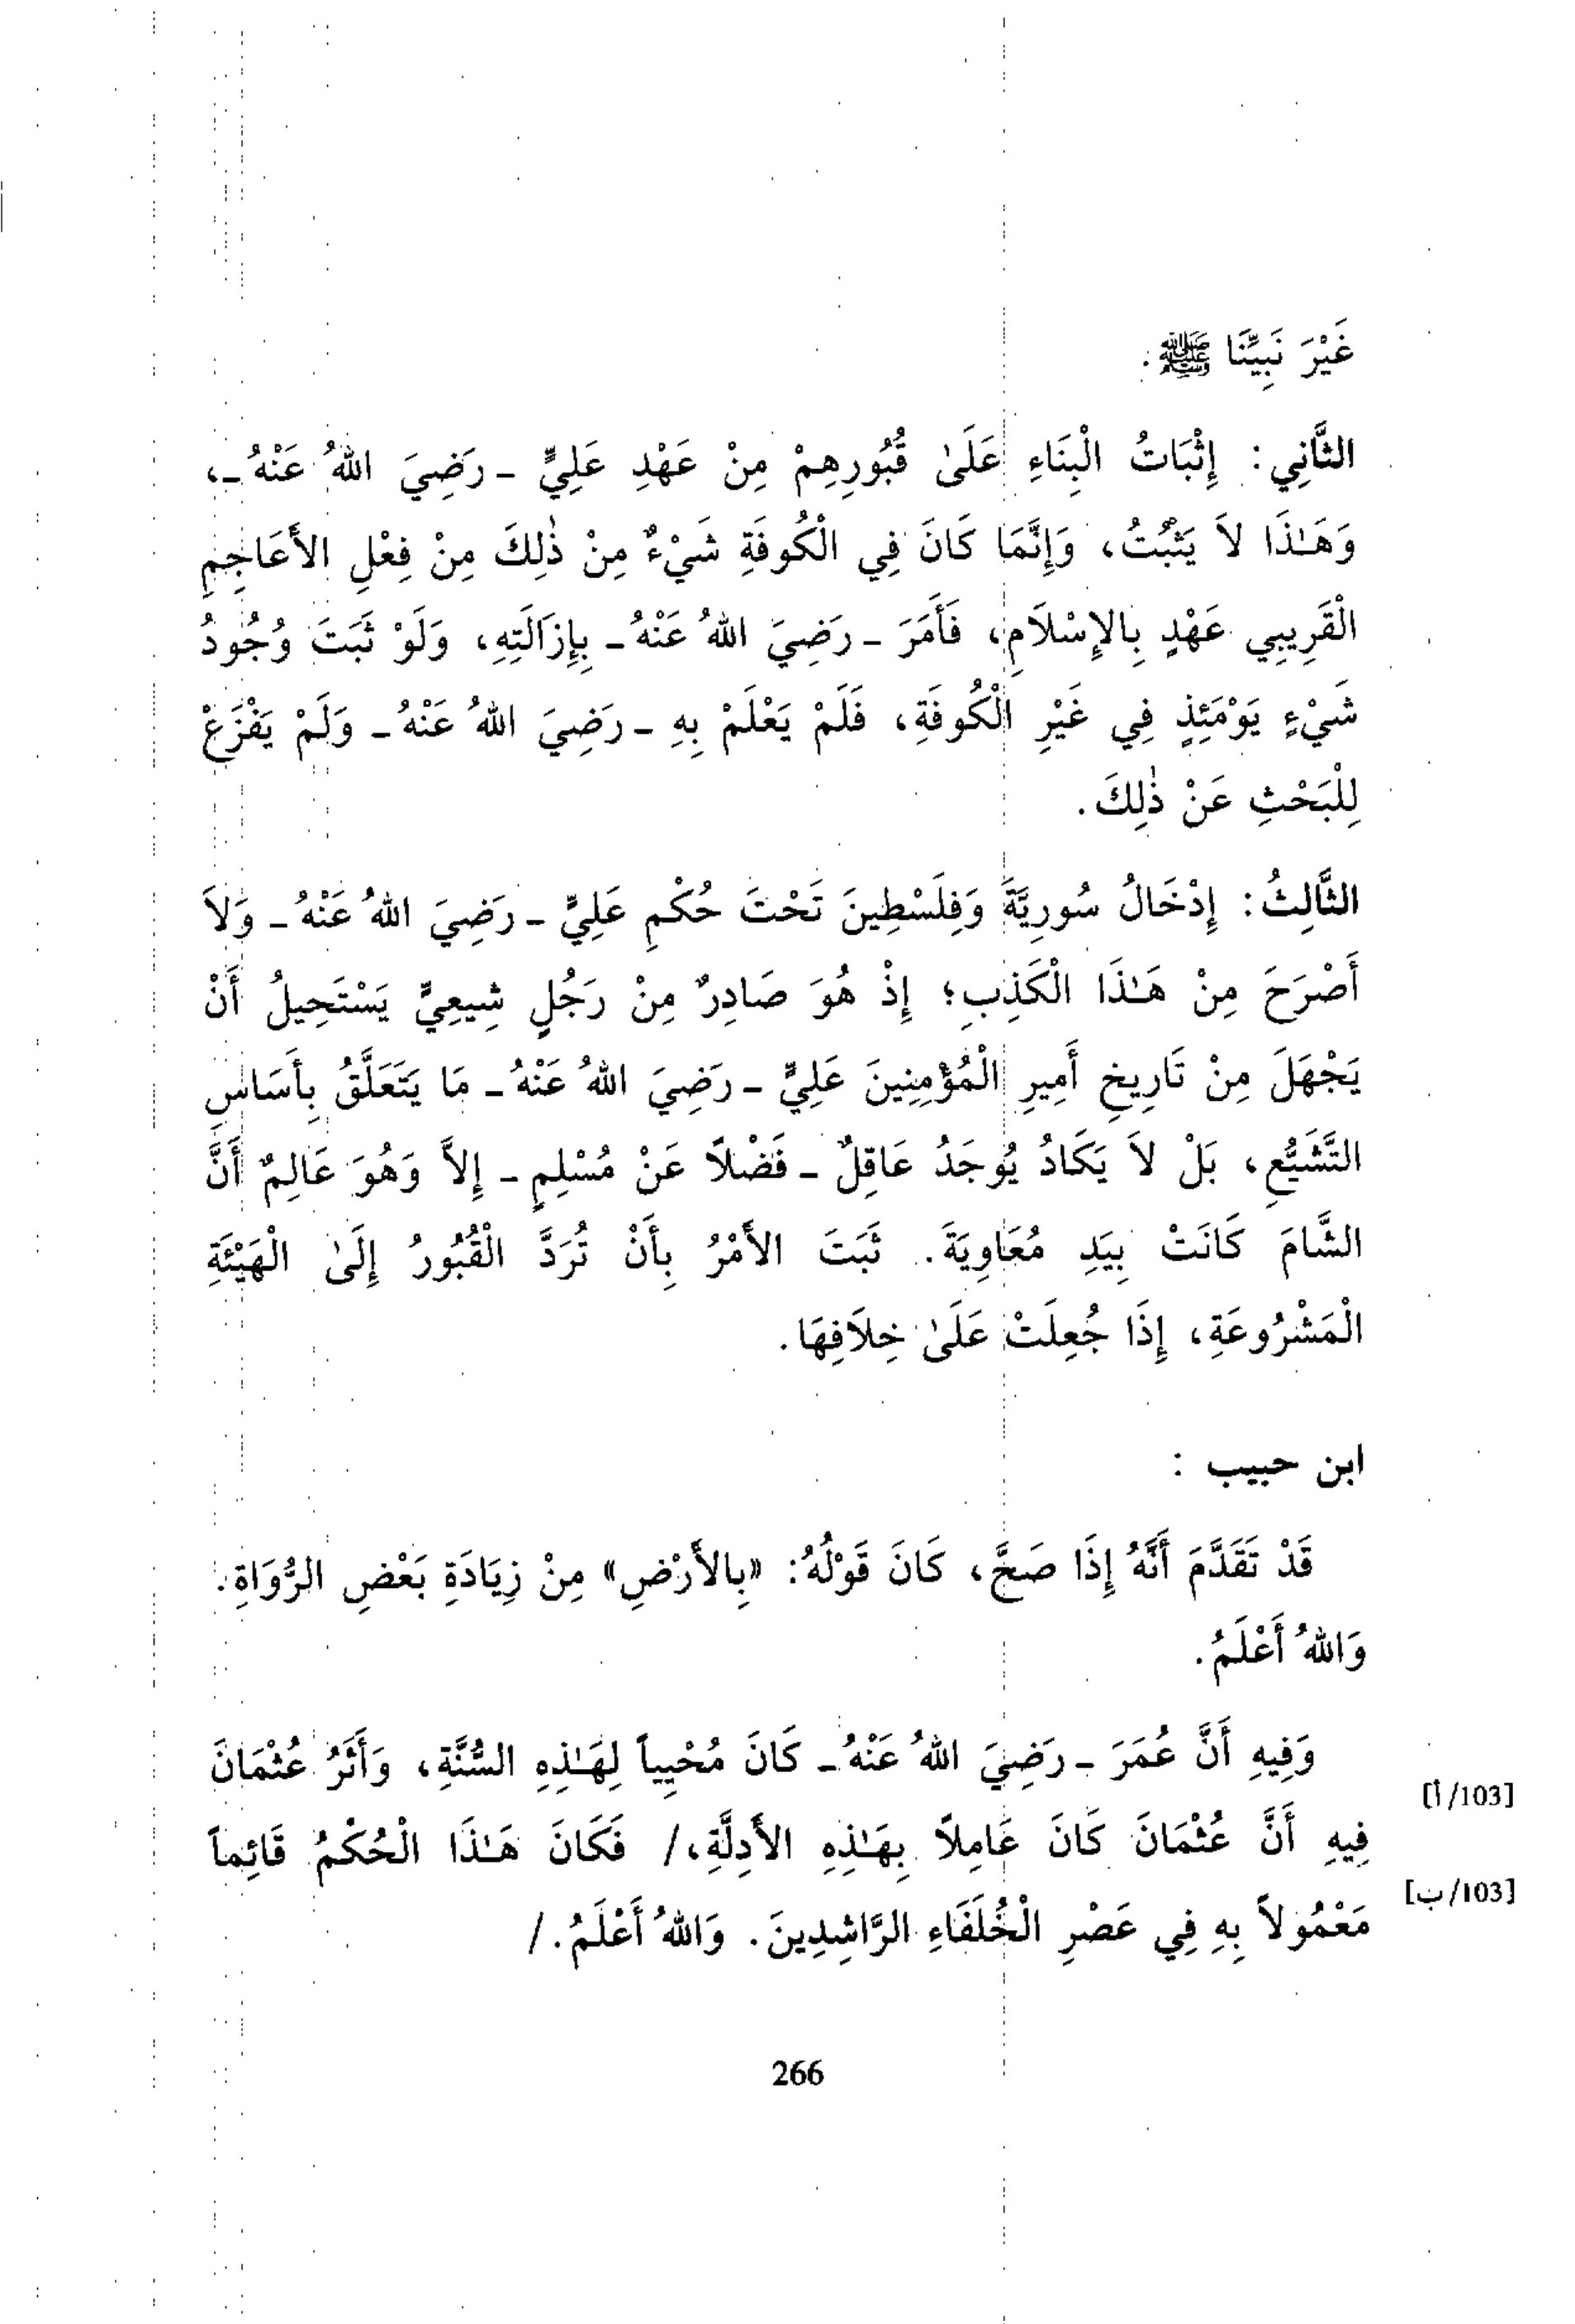 غَيْرَ نَبِيِّنَا ﷺ.
الثَّانِي: إِثْبَاتُ الْبِنَاءِ عَلَىٰ قُبُورِهِمْ مِنْ عَهْدِ عَلِيٍّ ـ رَضِيَ اللهُ عَنْهُ ـ،
وَهَـٰذَا لاَ يَثْبُتُ، وَإِنَّمَا كَانَ فِي الْكُوفَةِ شَيْءٌ مِنْ ذٰلِكَ مِنْ فِعْلِ الأَعَاجِمِ
الْقَرِيبِي عَهْدٍ بِالإِسْلاَمِ، فَأَمَرَ ـ رَضِيَ اللهُ عَنْهُ ـ بِإِزَالَتِهِ، وَلَوْ ثَبَتَ وُجُودُ
شَيْءٍ يَوْمَئِذٍ فِي غَيْرِ الْكُوفَةِ، فَلَمْ يَعْلَمْ بِهِ ـ رَضِيَ اللهُ عَنْهُ ـ وَلَمْ يَفْزَعْ
لِلْبَحْثِ عَنْ ذٰلِكَ.
الثَّالِثُ: إِدْخَالُ سُورِيَّةَ وَفِلَسْطِينَ تَحْتَ حُكْمِ عَلِيٍّ ـ رَضِيَ اللهُ عَنْهُ ـ وَلاَ
أَصْرَحَ مِنْ هَـٰذَا الْكَذِبِ؛ إِذْ هُوَ صَادِرٌ مِنْ رَجُلٍ شِيعِيٍّ يَسْتَحِيلُ أَنْ
يَجْهَلَ مِنْ تَارِيخِ أَمِيرِ الْمُؤْمِنِينَ عَلِيٍّ ـ رَضِيَ اللهُ عَنْهُ ـ مَا يَتَعَلَّقُ بِأَسَاسِ
التَّشَيُّعِ، بَلْ لاَ يَكَادُ يُوجَدُ عَاقِلٌ ـ فَضْلاً عَنْ مُسْلِمٍ ـ إِلاَّ وَهُوَ عَالِمٌ أَنَّ
الشَّامَ كَانَتْ بِيَدِ مُعَاوِيَةَ. ثَبَتَ الأَمْرُ بِأَنْ تُرَدَّ الْقُبُورُ إِلَىٰ الْهَيْئَةِ
الْمَشْرُوعَةِ، إِذَا جُعِلَتْ عَلَىٰ خِلاَفِهَا.
ابن حبيب :
قَدْ تَقَدَّمَ أَنَّهُ إِذَا صَحَّ، كَانَ قَوْلُهُ: «بِالأَرْضِ» مِنْ زِيَادَةِ بَعْضِ الرُّوَاةِ.
وَاللهُ أَعْلَمُ.
وَفِيهِ أَنَّ عُمَرَ ـ رَضِيَ اللهُ عَنْهُ ـ كَانَ مُحْيِياً لِهَـٰذِهِ السُّنَّةِ، وَأَثَرُ عُثْمَانَ
[103/أ]
فِيهِ أَنَّ عُثْمَانَ كَانَ عَامِلاً بِهَـٰذِهِ الأَدِلَّةِ،/ فَكَانَ هَـٰذَا الْحُكْمُ قَائِماً
[103/ب]
مَعْمُولاً بِهِ فِي عَصْرِ الْخُلَفَاءِ الرَّاشِدِينَ. وَاللهُ أَعْلَمُ./
266